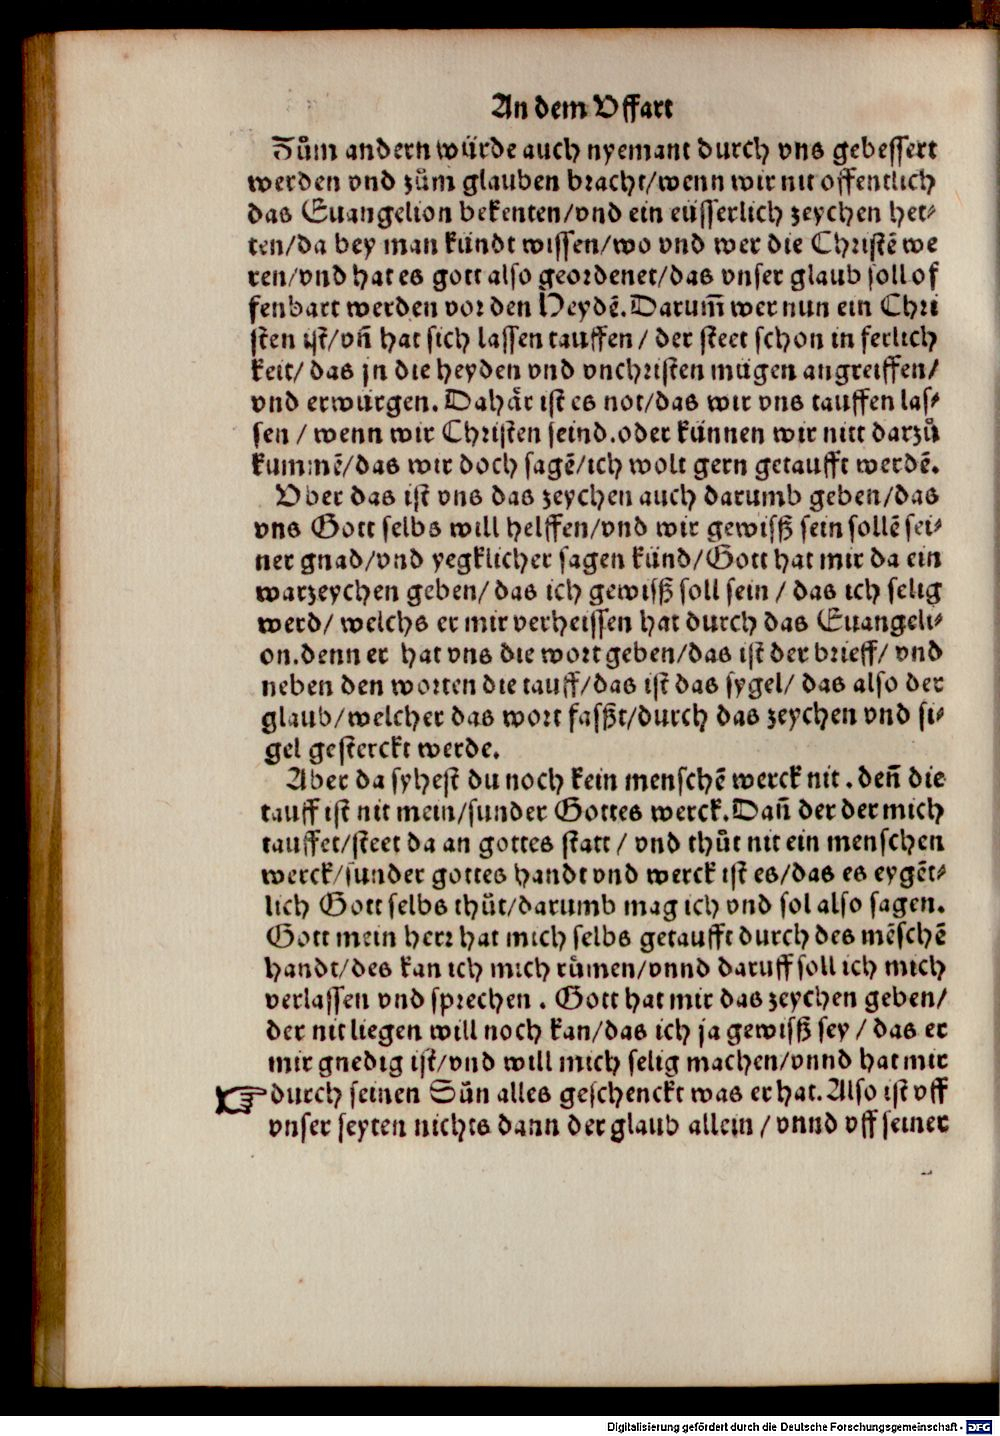 An dem Vffart
Zům andern würde auch nyemant durch vns gebessert
werden vnd zům glauben bracht/wenn wir nit offentlich
das Euangelion bekenten/vnd ein eüsserlich zeychen het⸗
ten/da bey man kündt wissen/wo vnd wer die Christē we
ren/vnd hat es gott also geordenet/das vnser glaub soll of
fenbart werden vor den Heydē. Darum̃ wer nun ein Chri
sten ist/vñ hat sich lassen tauffen / der steet schon in ferlich
keit/ das jn die heyden vnd vnchristen mügen angreiffen/
vnd erwürgen. Dahår ist es not/das wir vns tauffen las⸗
sen / wenn wir Christen seind. oder künnen wir nitt darzů
kummē/das wir doch sagē/ich wolt gern getaufft werdē.
Vber das ist vns das zeychen auch darumb geben/das
vns Gott selbs will helffen/vnd wir gewisß sein sollē sei⸗
ner gnad/vnd yegklicher sagen künd/Gott hat mir da ein
warzeychen geben/ das ich gewisß soll sein / das ich selig
werd/ welchs er mir verheissen hat durch das Euangeli⸗
on. denn er hat vns die wort geben/das ist der brieff/ vnd
neben den worten die tauff/das ist das sygel/ das also der
glaub/welcher das wort fasßt/durch das zeychen vnd si⸗
gel gesterckt werde.
Aber da syhest du noch kein menschē werck nit . deñ die
tauff ist nit mein/sunder Gottes werck. Dañ der der mich
tauffet/steet da an gottes statt / vnd thůt nit ein menschen
werck/sunder gottes handt vnd werck ist es/das es eygēt⸗
lich Gott selbs thůt/darumb mag ich vnd sol also sagen.
Gott mein herr hat mich selbs getaufft durch des mēschē
handt/des kan ich mich růmen/vnnd daruff soll ich mich
verlassen vnd sprechen . Gott hat mir das zeychen geben/
der nit liegen will noch kan/das ich ja gewisß sey / das er
mir gnedig ist/vnd will mich selig machen/vnnd hat mir
☞ durch seinen Sün alles geschenckt was er hat. Also ist vff
vnser seyten nichts dann der glaub allein / vnnd vff seiner
Digitalisierung gefördert durch die Deutsche Forschungsgemeinschaft - DFG